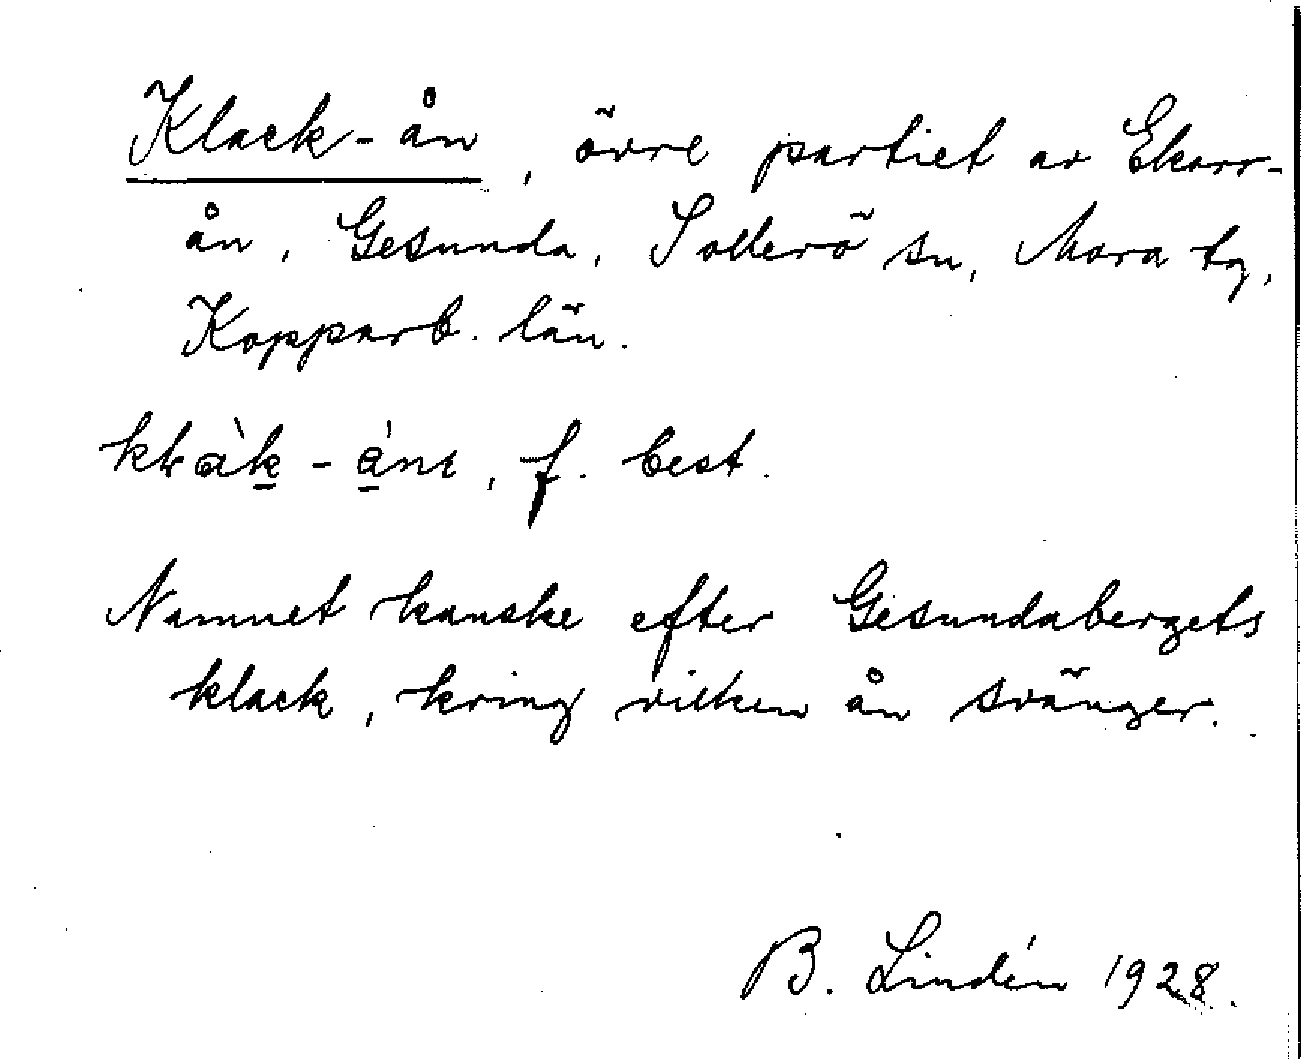 Klack-ån, övre partiet av Ekorr-
ån, Gesunda, Sollerö sn, Mora tg,
Kopparb. län.
f. best.
Namnet kanske efter Gesundabergets
klack, kring vilken ån svänger.
B. Lindén 1928.